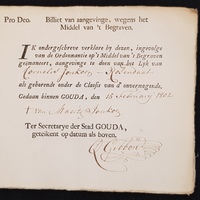 Pro Deo. Billiet van aangevinge, wegens het
Middel van 't Begraven.
IK ondergeschreve verklare by dezen, ingevolge
van de Ordonnantie op 't Middel van 't Begraven
geëmaneert, aangevinge te doen van het Lyk van
Cornelis Jonker
als gehorende onder de Classis van d'onvermogende,
Gedaan binnen GOUDA, den 18 February 1802
Ter Secretarye der Stad GOUDA,
geteekent op datum als boven,